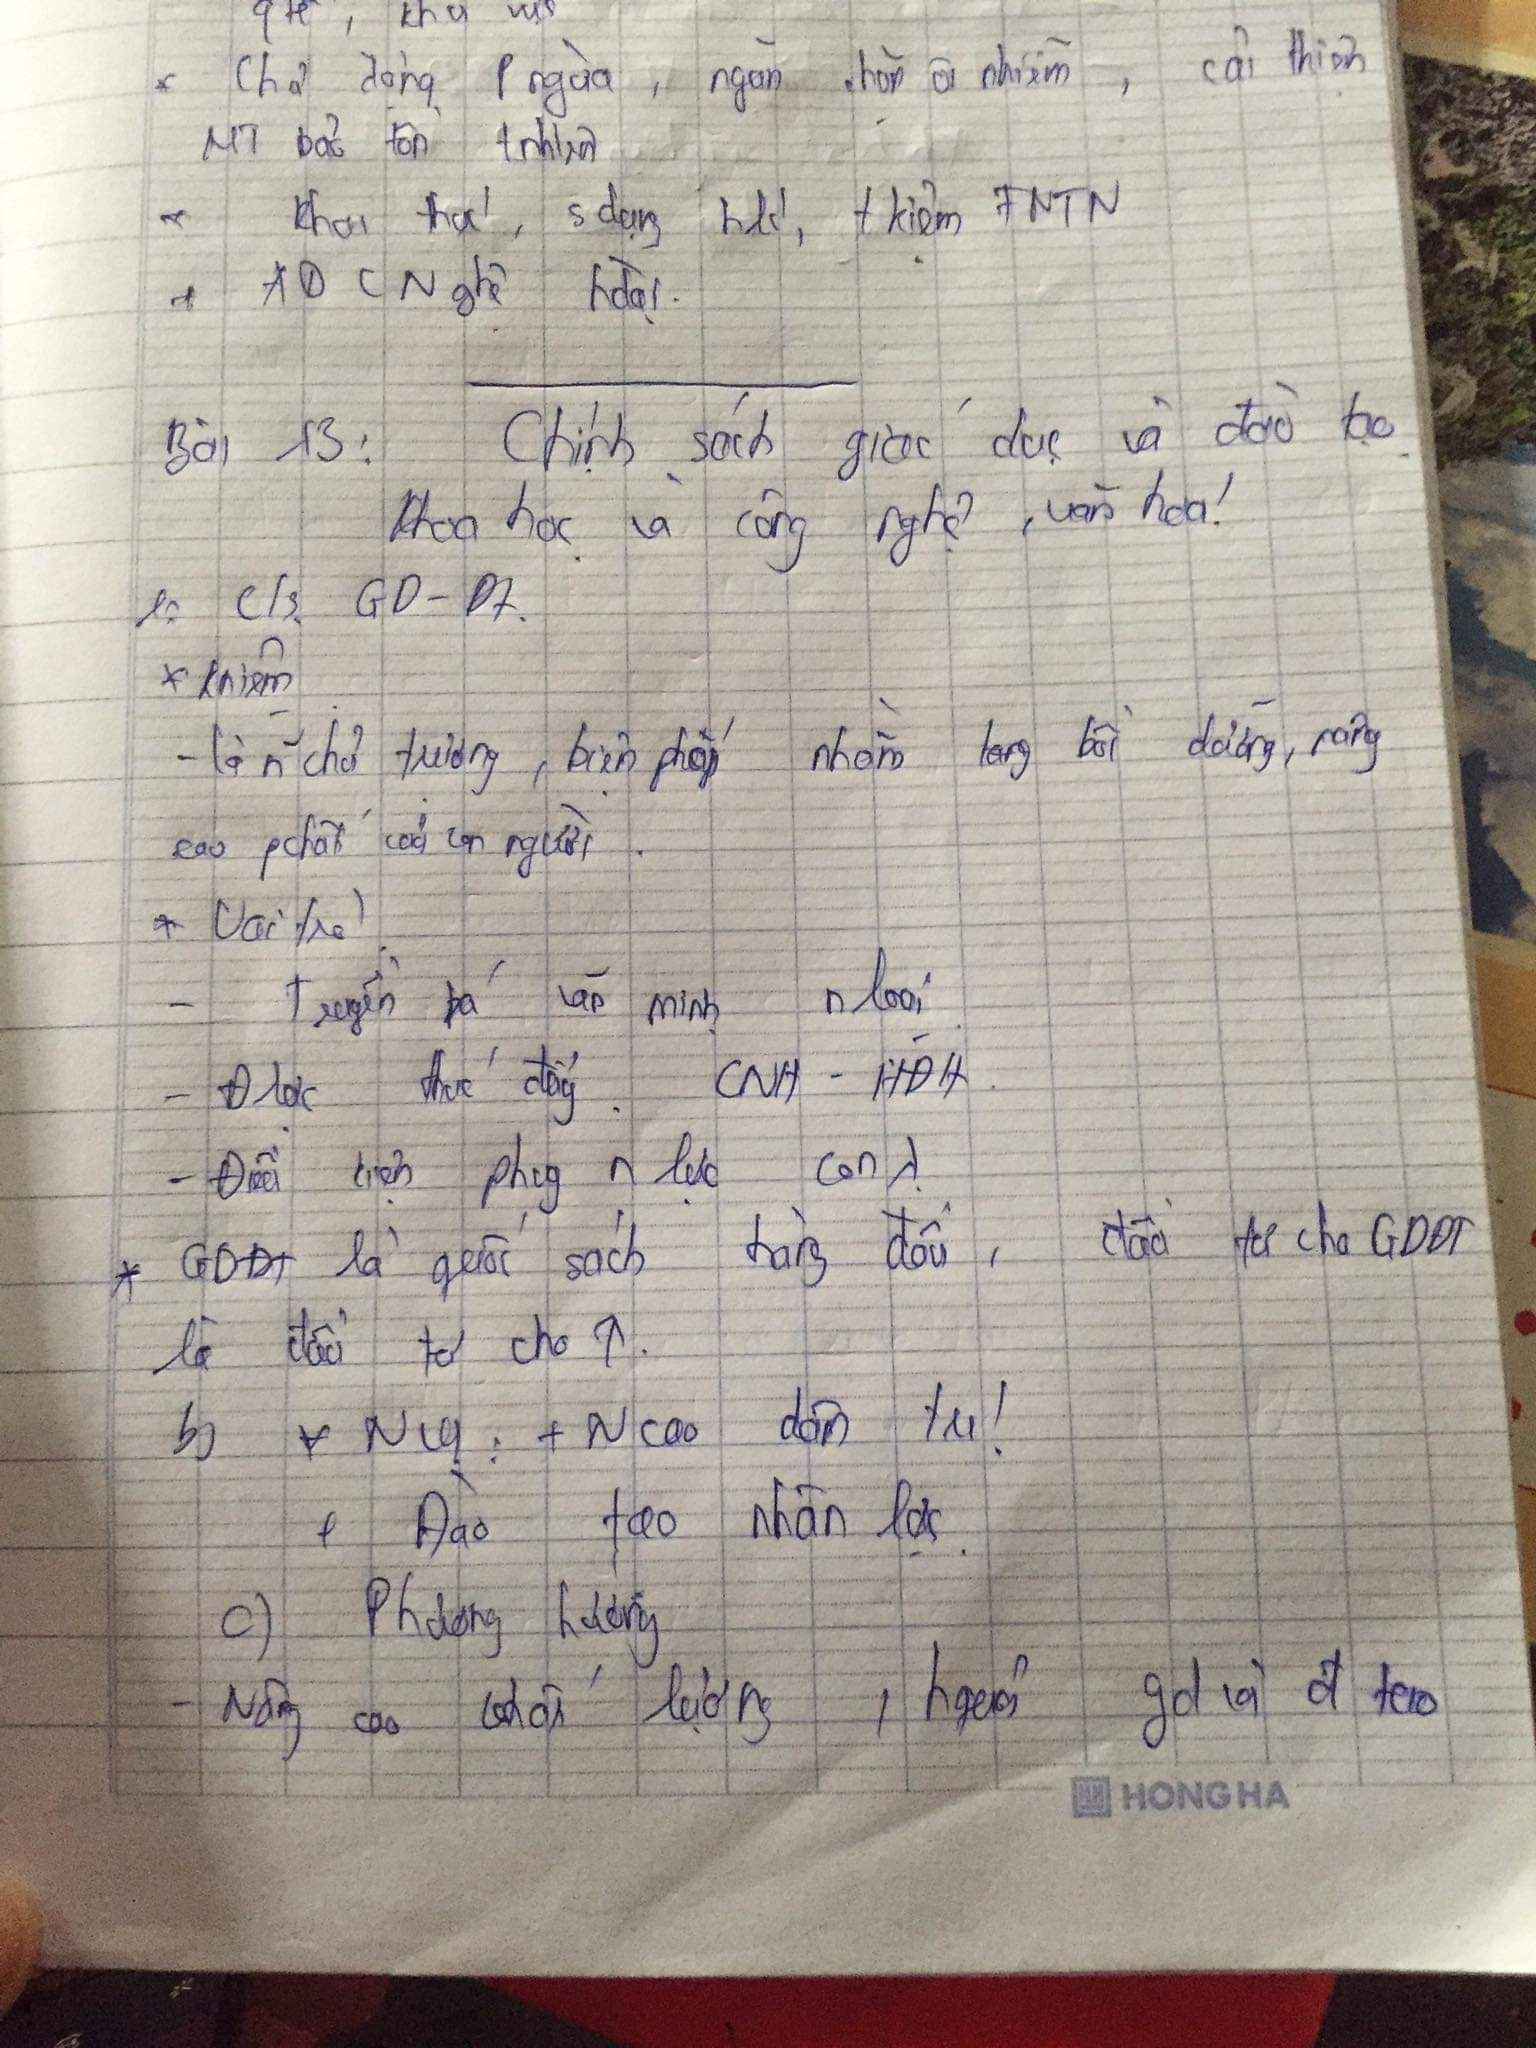 * Chủ động p ngừa, ngăn chặn ô nhiễm, cải thiện
MT bảo tồn tnhiên
* Khai thác, sdụng hlí, tkiệm TNTN
+ AD CNghệ hđại.
Bài 13: Chính sách giáo dục và đào tạo
khoa học và công nghệ, văn hóa!
1. C/s GD-ĐT.
* kniệm
- là n~ chủ trương, biện pháp nhằm bồi dưỡng, nâng
cao pchất của con người.
* Vai trò
- Truyền bá văn minh nloại
- Đlực thúc đẩy CNH - HĐH.
- Điều kiện phuy nlực con
* GDĐT là quốc sách hàng đầu, đầu tư cho GDĐT
là đầu tư cho ↑.
b) * NVụ: + Ncao dân trí
+ Đào tạo nhân lực.
c) Phương hướng
- Nâng cao chất lượng, hquả gd và đ tạo
HONG HA